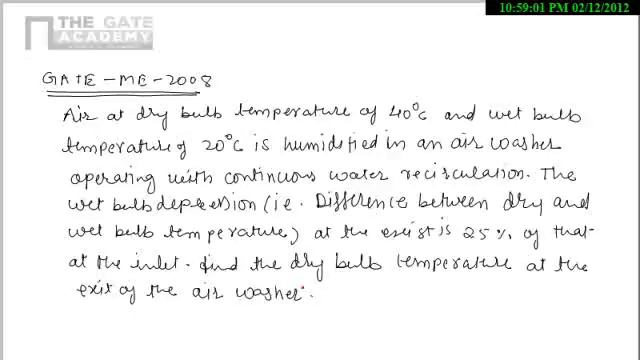 10:59:01 PM 02/12/2012
THE GATE
ACADEMY
GATE-ME-2008
Air at dry bulb temperature of 40°C and wet bulb
temperature of 20°C is humidified in an air washer
operating with continuous water recirculation. The
wet bulb depression (ie. Difference between dry and
wet bulb temperature) at the exist is 25% of that
at the inlet. find the dry bulb temperature at the
exit of the air washer.